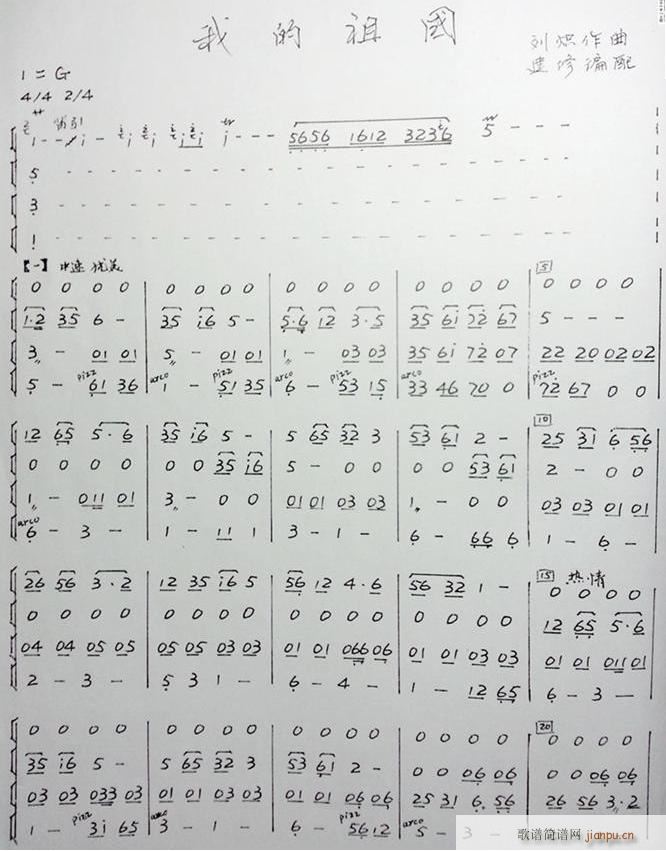 我的祖國
1=G
刘炽作曲
4/4 2/4
建修编配
サ
tr
i - - - i - i i i i i - - - 5656 1612 3236 5 - - -
5 - - - - - - - - - - - - - - -
3 - - - - - - - - - - - - - - -
1 - - - - - - - - - - - - - - -
【一】 中速 优美 5
0 0 0 0 | 0 0 0 0 | 0 0 0 0 | 0 0 0 0 | 0 0 0 0
1·2 35 6 - | 35 i6 5 - | 5·6 12 3·5 | 35 6i 72 67 | 5 - - -
3 - 01 01 | 5 - 01 01 | 1 - 03 03 | 35 61 72 07 | 22 20 02 02
5 - pizz 61 36 | arco 1 - pizz 51 35 | arco 6 - pizz 53 15 | arco 33 46 70 0 | pizz 72 67 0 0
10
12 65 5·6 | 35 i6 5 - | 5 65 32 3 | 53 61 2 - | 25 31 6 56
0 0 0 0 | 0 0 35 i6 | 5 - 0 0 | 0 0 53 61 | 2 - 0 0
1 - 011 01 | 3 - 0 0 | 01 01 03 03 | 1 - 0 0 | 03 03 01 01
arco 6 - 3 - | 1 - 11 1 | 3 - 1 - | 6 - 66 6 | 1 - 6 -
15 热情
26 56 3·2 | 12 35 i6 5 | 56 12 4·6 | 56 32 1 - | 0 0 0 0
0 0 0 0 | 0 0 0 0 | 0 0 0 0 | 0 0 0 0 | 12 65 5·6
04 04 05 05 | 05 05 03 03 | 01 01 066 06 | 01 01 03 03 | 01 01 011 01
2 - 3 - | 5 3 1 - | 6 - 4 - | 1 - 12 65 | 6 - 3 -
20
0 0 0 0 | 0 0 0 0 | 0 0 0 0 | 0 0 0 0 | 0 0 0 0
35 i6 5 - | 5 65 32 3 | 53 61 2 - | 0 0 06 06 | 0 0 06 06
03 03 033 03 | 01 01 03 03 | 01 01 06 06 | 25 31 6 56 | 26 56 3·2
1 - pizz 31 65 | arco 3 - 1 - | 6 - pizz 5612 | arco 5 - 3 - | 
歌谱简谱网 jianpu.cn